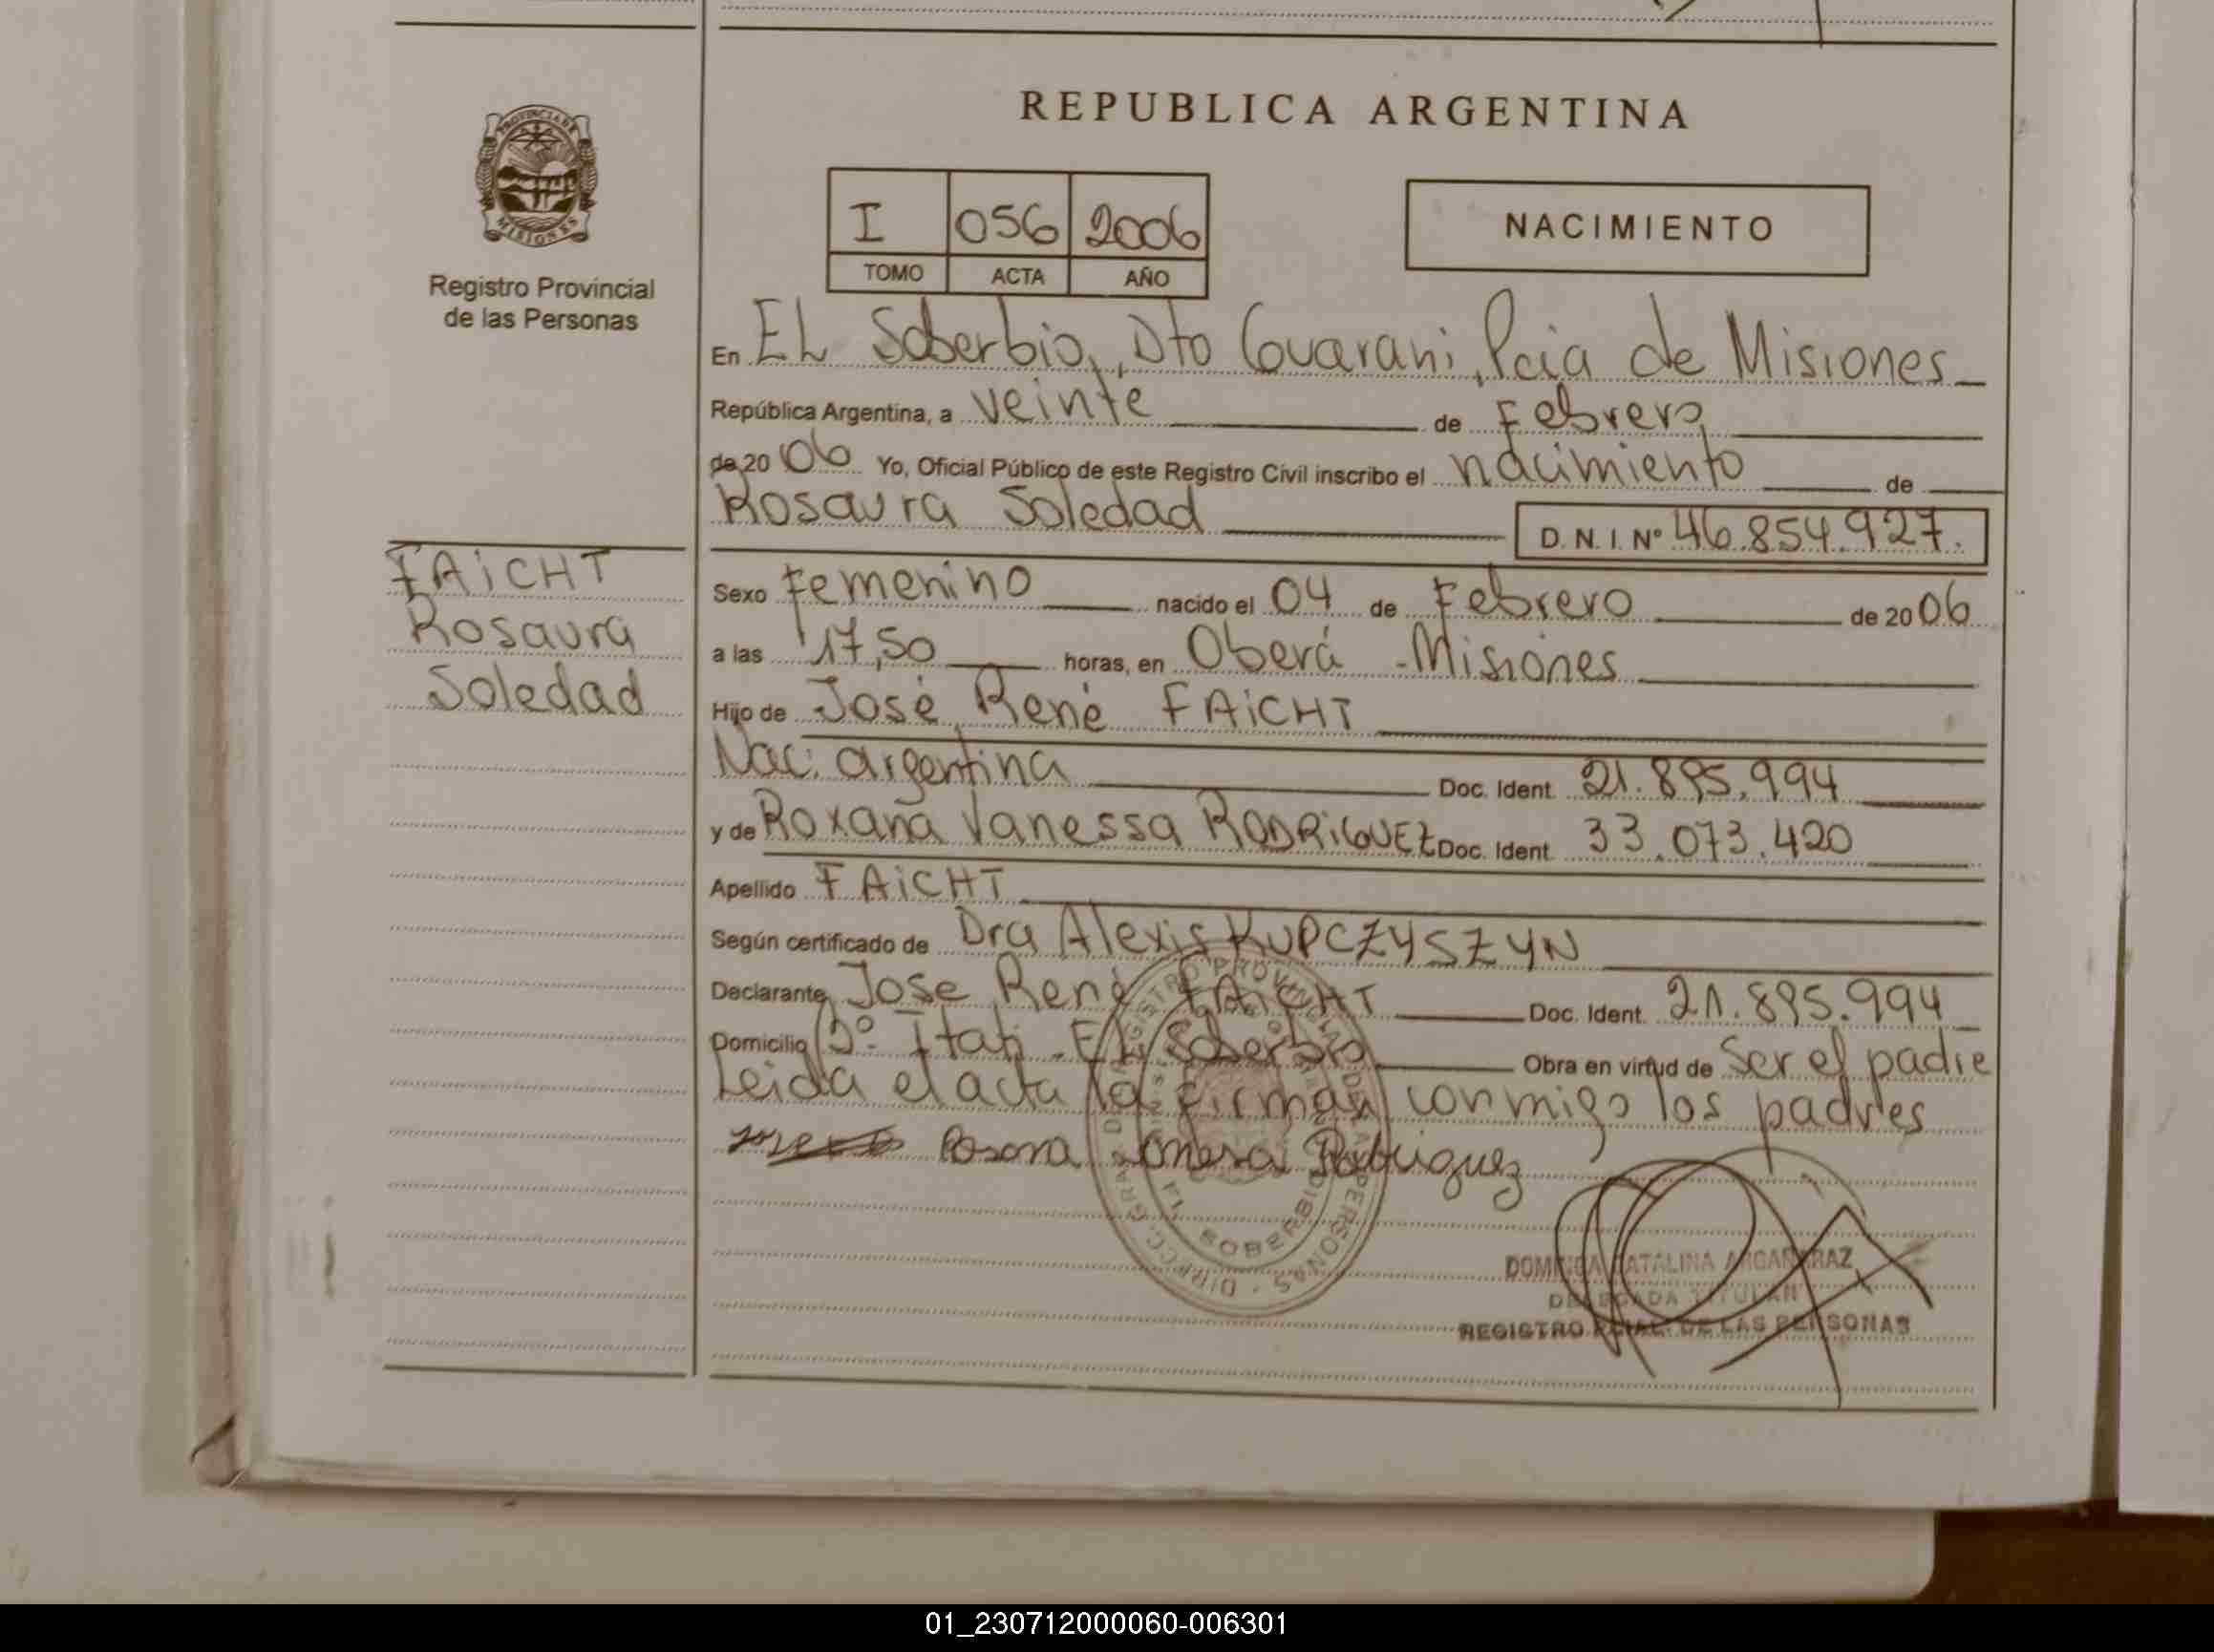 PROVINCIA DE
MISIONES
Registro Provincial
de las Personas
REPUBLICA ARGENTINA
I 056 2006
TOMO ACTA AÑO
NACIMIENTO
En EL Soberbio, Dto Guarani, Pcia de Misiones
República Argentina, a veinte de Febrero
de 20 06 Yo, Oficial Público de este Registro Civil inscribo el nacimiento de
Rosaura Soledad D.N.I. Nº 46.854.927.
FAiCHT
Rosaura
Soledad
Sexo Femenino nacido el 04 de Febrero de 20 06
a las 17,50 horas, en Oberá - Misiones
Hijo de José René FAiCHT
Nac. argentina Doc. Ident. 21.895.994
y de Roxana Vanessa RODRiGUEZ Doc. Ident. 33.073.420
Apellido FAiCHT
Según certificado de Dra Alexis KUPCZYSZYN
Declarante Jose René FAiCHT Doc. Ident. 21.895.994
Domicilio Bº Itati - EL Soberbio Obra en virtud de Ser el padre
Leida el acta la firman conmigo los padres
Rodriguez
DIRECC. GRAL. DEL REGISTRO PROVINCIAL DE LAS PERSONAS
EL SOBERBIO
CATALINA ARGAÑARAZ
DELEGADA TITULAR
REGISTRO PCIAL. DE LAS PERSONAS
01_230712000060-006301